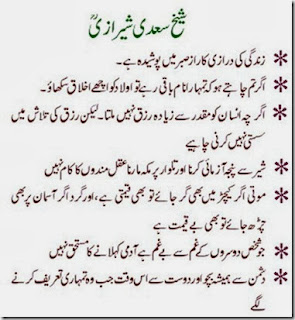 شیخ سعدی شیرازیؒ
* زندگی کی درازی کا راز صبر میں پوشیدہ ہے۔
* اگر تم چاہتے ہو کہ تمہارا نام باقی رہے تو اولاد کو اچھے اخلاق سکھاؤ۔
* اگر چہ انسان کو مقدر سے زیادہ رزق نہیں ملتا۔ لیکن رزق کی تلاش میں
سستی نہیں کرنی چاہیے
* شیر سے پنجہ آزمائی کرنا اور تلوار پر مکہ مارنا عقل مندوں کا کام نہیں
* موتی اگر کیچڑ میں بھی گر جائے تو بھی قیمتی ہے، اور گرد اگر آسمان پر بھی
چڑھ جائے تو بھی بے قیمت ہے
* جو شخص دوسروں کے غم سے بے غم ہے آدمی کہلانے کا مستحق نہیں
* دشمن سے ہمیشہ بچو اور دوست سے اس وقت جب وہ تمہاری تعریف کرنے
لگے